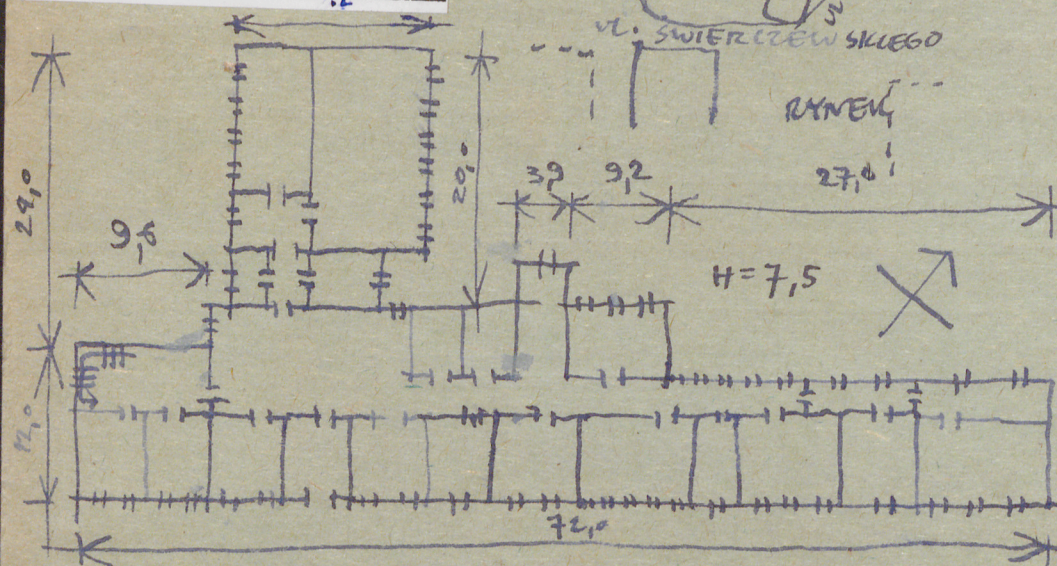 ul. SWIERCZEWSKIEGO
RYNEK
24,0
20,0
3,9
9,2
27,0
9,8
H=7,5
12,0
72,0